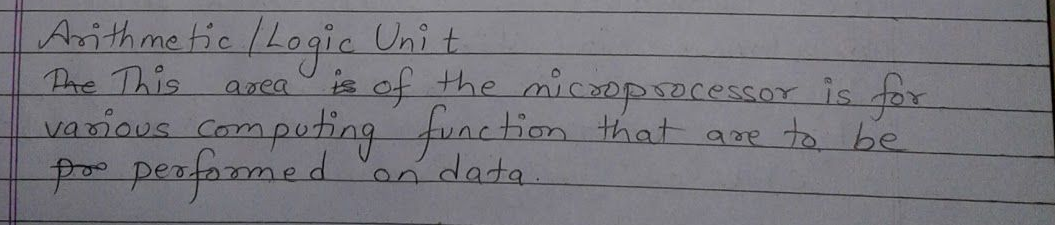 Arithmetic / Logic Unit
The This area is of the microprocessor is for
various computing function that are to be
pro performed on data.